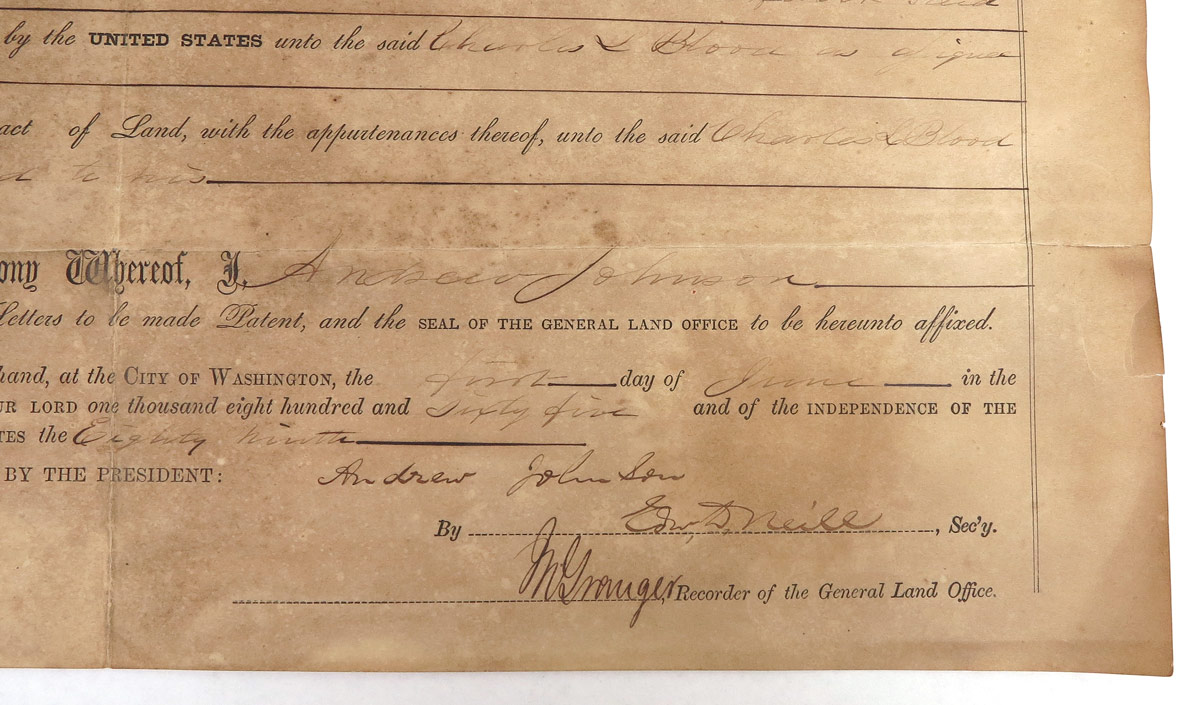 said
by the UNITED STATES unto the said Charles L Blood as
act of Land, with the appurtenances thereof, unto the said Charles L Blood
d to his
ony Whereof, I, Andrew Johnson
Letters to be made Patent, and the SEAL OF THE GENERAL LAND OFFICE to be hereunto affixed.
hand, at the CITY OF WASHINGTON, the first day of June in the
UR LORD one thousand eight hundred and Sixty five and of the INDEPENDENCE OF THE
TES the Eighty ninth
BY THE PRESIDENT: Andrew Johnson
By Edw, D, Neill, Sec'y.
Granger, Recorder of the General Land Office.